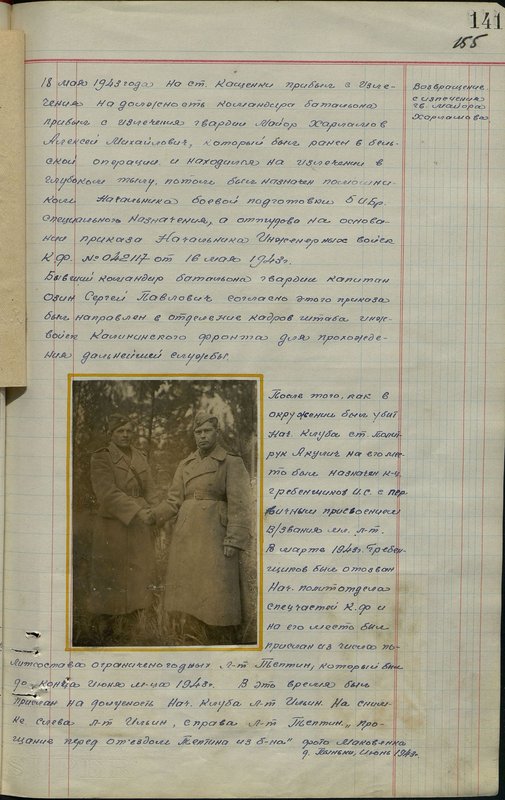 141
155
18 мая 1943 года на ст. Кащенки прибыл с изле-
чения на должность командира батальона
прибыл с излечения гвардии майор Харламов
Алексей Михайлович, который был ранен в бель-
ской операции и находился на излечении в
глубоком тылу, потом был назначен помощни-
ком начальника боевой подготовки 5 ИБр.
специального назначения, а оттудова на основа-
нии приказа Начальника Инженерных войск
К.Ф. № 042117 от 16 мая 1943г.
Бывший командир батальона гвардии капитан
Озин Сергей Павлович согласно этого приказа
был направлен в отделение кадров штаба инж-
войск Калининского фронта для прохожде-
ния дальнейшей службы.
Возвращение
с излечения
гв. майора
Харламова
После того, как в
окружении был убит
нач. клуба ст. полит
рук Акулич на его ме-
то был назначен к-ц
Гребенщиков И.С. с пер
вичным присвоением
в/звания мл. л-т.
В марте 1943г. Гребен-
щиков был отозван
Нач. политотдела
спецчастей К.Ф и
на его место был
прислан из числа по-
литсостава ограниченогодных л-т Тептин, который был
до конца июня м-ца 1943г. В это время был
прислан на должность нач. клуба л-т Ильин. На сним-
ке слева л-т Ильин, справа л-т Тептин. „Про-
щание перед отъездом Тептина из б-на" фото Маковенко
июнь 1943г.